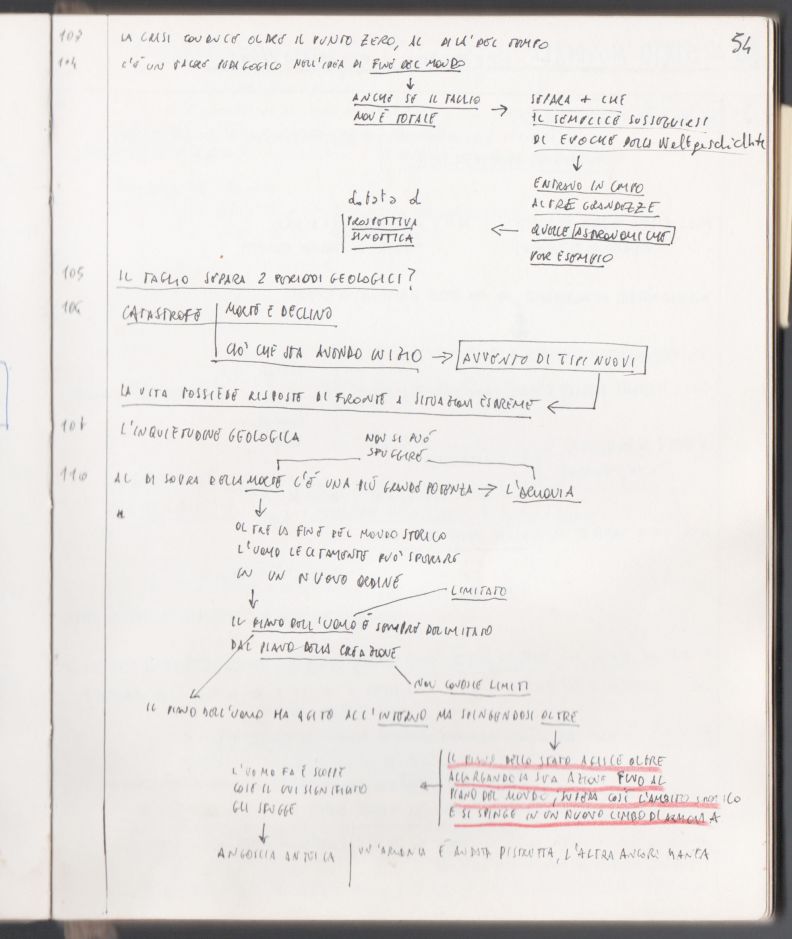 54
103 LA CRISI CONDUCE OLTRE IL PUNTO ZERO, AL DI LÀ DEL TEMPO
104 C'È UN VALORE PEDAGOGICO NELL'IDEA DI FINE DEL MONDO
ANCHE SE IL TAGLIO → SEPARA + CHE
NON È TOTALE IL SEMPLICE SUSSEGUIRSI
DI EPOCHE DELLA Weltgeschichte
ENTRANO IN CAMPO
ALTRE GRANDEZZE
QUELLE ASTRONOMICHE
PER ESEMPIO
PROSPETTIVA
SINOTTICA
105 IL TAGLIO SEPARA 2 PERIODI GEOLOGICI?
106 CATASTROFE MORTE E DECLINO
CIO' CHE STA AVENDO INIZIO → AVVENTO DI TIPI NUOVI
LA VITA POSSIEDE RISPOSTE DI FRONTE A SITUAZIONI ESTREME
L'INQUIETUDINE GEOLOGICA
NON SI PUÒ
SFUGGIRE
110 AL DI SOPRA DELLA MORTE C'È UNA PIÙ GRANDE POTENZA → L'ARMONIA
OLTRE LA FINE DEL MONDO STORICO
L'UOMO LECITAMENTE PUÒ SPERARE
IN UN NUOVO ORDINE
LIMITATO
IL PIANO DELL'UOMO È SEMPRE DELIMITATO
DAL PIANO DELLA CREAZIONE
NON CONOSCE LIMITI
IL PIANO DELL'UOMO HA AGITO ALL'INTERNO MA SPINGENDOSI OLTRE
IL PIANO DELLO STATO AGISCE OLTRE
ALLARGANDO LA SUA AZIONE FINO AL
PIANO DEL MONDO, SUPERA COSÌ L'AMBITO STORICO
E SI SPINGE IN UN NUOVO LIMBO DI ARMONIA
L'UOMO FA E SCOPRE
COSE IL CUI SIGNIFICATO
GLI SFUGGE
ANGOSCIA ANTICA UN'ARMONIA È ANDATA DISTRUTTA, L'ALTRA ANCORA MANCA